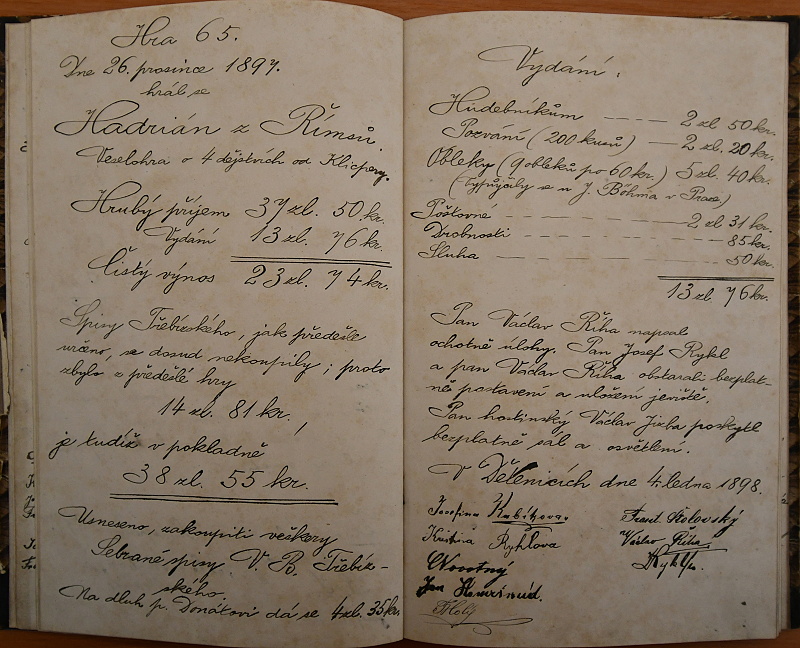 Hra 65.
Dne 26. prosince 1897.
hrál se
Hadrián z Římsů.
Veselohra o 4 dějstvích od Klicpery.
Hrubý příjem 37 zl. 50 kr.
Vydání 13 zl. 76 kr.
Čistý výnos 23 zl. 74 kr.
Spisy Třebízského, jak předešle
určeno, se dosud nekoupily; proto
zbylo z předešlé hry
14 zl. 81 kr.,
je tudíž v pokladně
38 zl. 55 kr.
Usneseno, zakoupiti veškery
Sebrané spisy V. B. Třebíz-
ského.
Na dluh p. Donátovi dá se 4 zl. 35 kr.
Vydání:
Hudebníkům 2 zl 50 kr.
Pozvání (200 kusů) 2 zl. 20 kr.
Obleky (9 obleků po 60 kr.) 5 zl. 40 kr.
(Vypůjčily se u J. Böhma v Praze.)
Poštovné 2 zl 31 kr.
Drobnosti 85 kr.
Sluha 50 kr.
13 zl 76 kr.
Pan Václav Říha napsal
ochotně úlohy. Pan Josef Rykl
a pan Václav Říha obstarali bezplat-
ně postavení a uložení jeviště.
Pan hostinský Václav Jizba poskytl
bezplatně sál a osvětlení.
V Dětenicích dne 4. ledna 1898.
Josefina Kubitzova. Frant Stolovský
Kristina Ryklova Václav Říha
Novotný Rykl
Jan